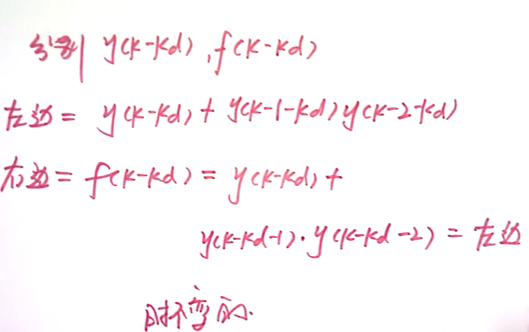 分别 y(k-kd), f(k-kd)
左边 = y(k-kd) + y(k-1-kd) y(k-2-kd)
右边 = f(k-kd) = y(k-kd) +
y(k-kd-1)·y(k-kd-2) = 左边
时不变的.